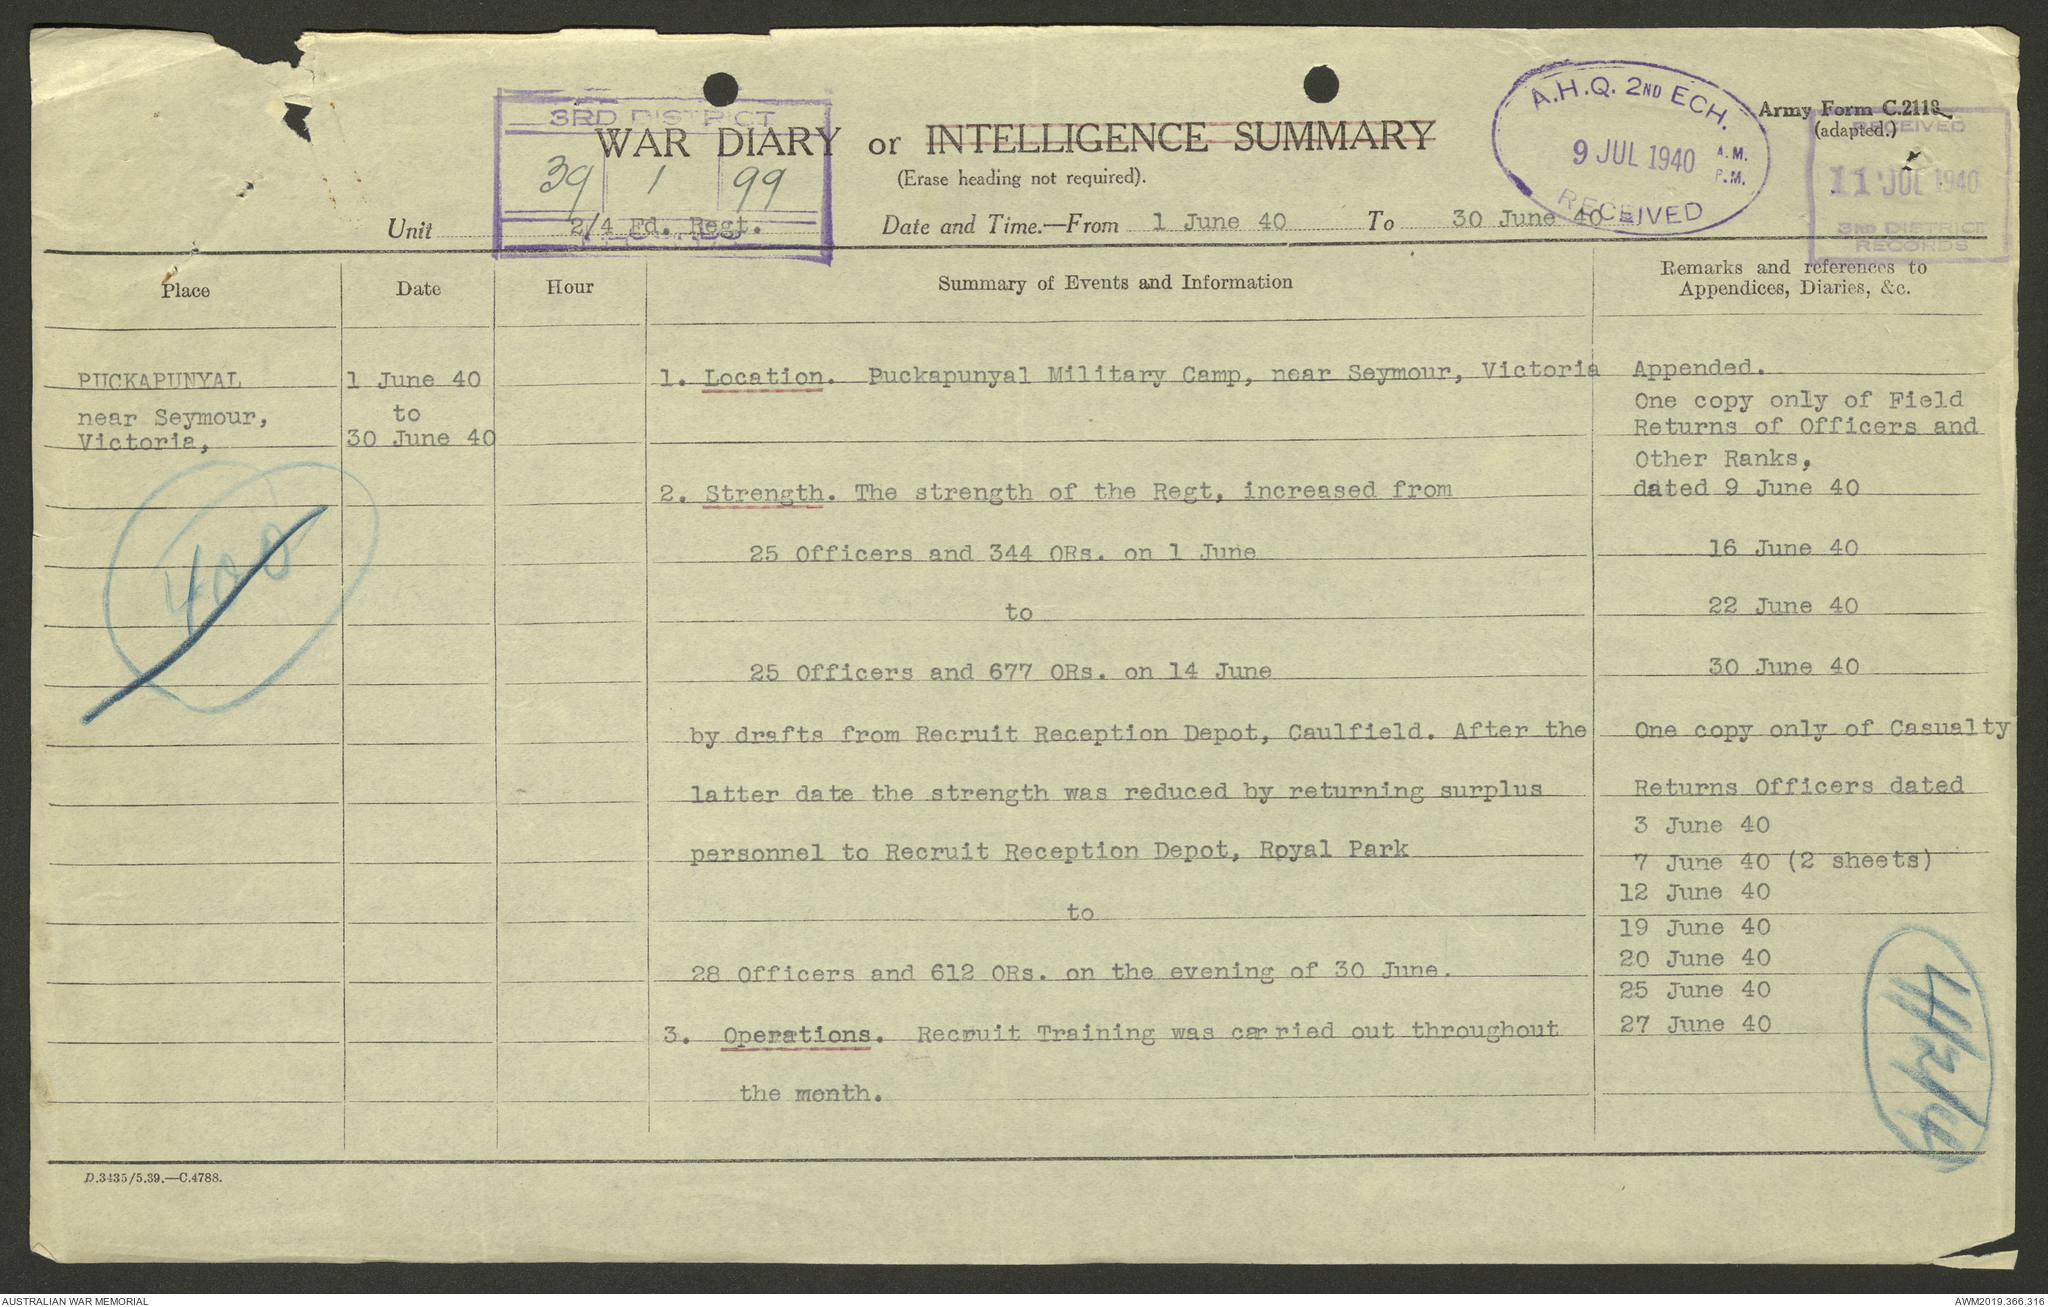 Army Form C.2118
(adapted.)
3RD DISTRICT
39 1 99
WAR DIARY or INTELLIGENCE SUMMARY
(Erase heading not required).
A.H.Q. 2ND ECH.
9 JUL 1940 A.M. P.M.
RECEIVED
RECEIVED
11 JUL 1940
3RD DISTRICT
RECORDS
Unit 2/4 Fd. Regt. Date and Time.—From 1 June 40 To 30 June 40
Place Date Hour Summary of Events and Information Remarks and references to
Appendices, Diaries, &c.
PUCKAPUNYAL
near Seymour,
Victoria,
1 June 40
to
30 June 40
1. Location. Puckapunyal Military Camp, near Seymour, Victoria
2. Strength. The strength of the Regt, increased from
25 Officers and 344 ORs. on 1 June
to
25 Officers and 677 ORs. on 14 June
by drafts from Recruit Reception Depot, Caulfield. After the
latter date the strength was reduced by returning surplus
personnel to Recruit Reception Depot, Royal Park
to
28 Officers and 612 ORs. on the evening of 30 June.
3. Operations. Recruit Training was carried out throughout
the month.
Appended.
One copy only of Field
Returns of Officers and
Other Ranks,
dated 9 June 40
16 June 40
22 June 40
30 June 40
One copy only of Casualty
Returns Officers dated
3 June 40
7 June 40 (2 sheets)
12 June 40
19 June 40
20 June 40
25 June 40
27 June 40
400
4/2/4
D.3435/5.39.—C.4788.
AUSTRALIAN WAR MEMORIAL
AWM2019.366.316